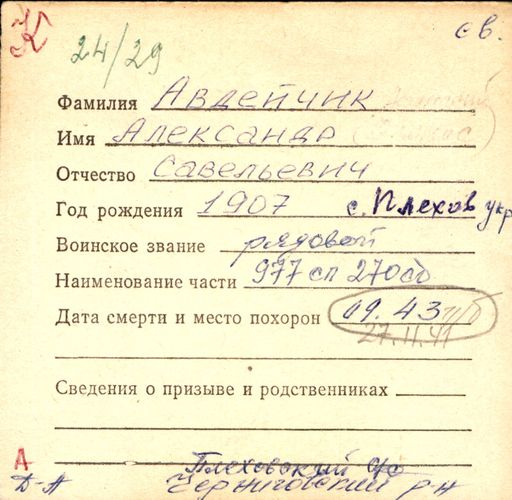 К
24/29
св.
Фамилия Авдейчик
Имя Александр
Отчество Савельевич
Год рождения 1907 с. Плехов укр
Воинское звание рядовой
Наименование части 977 сп 270 сд
Дата смерти и место похорон 09.43
27.11.41
Сведения о призыве и родственниках
А
Д-А
Плеховский с/с
Черниговский р-н